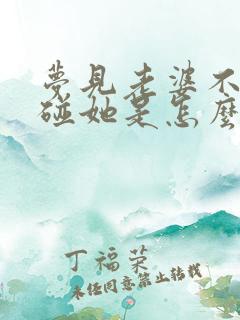 夢見老婆不
碰她是怎麼
丁福荣
未经同意禁止转载